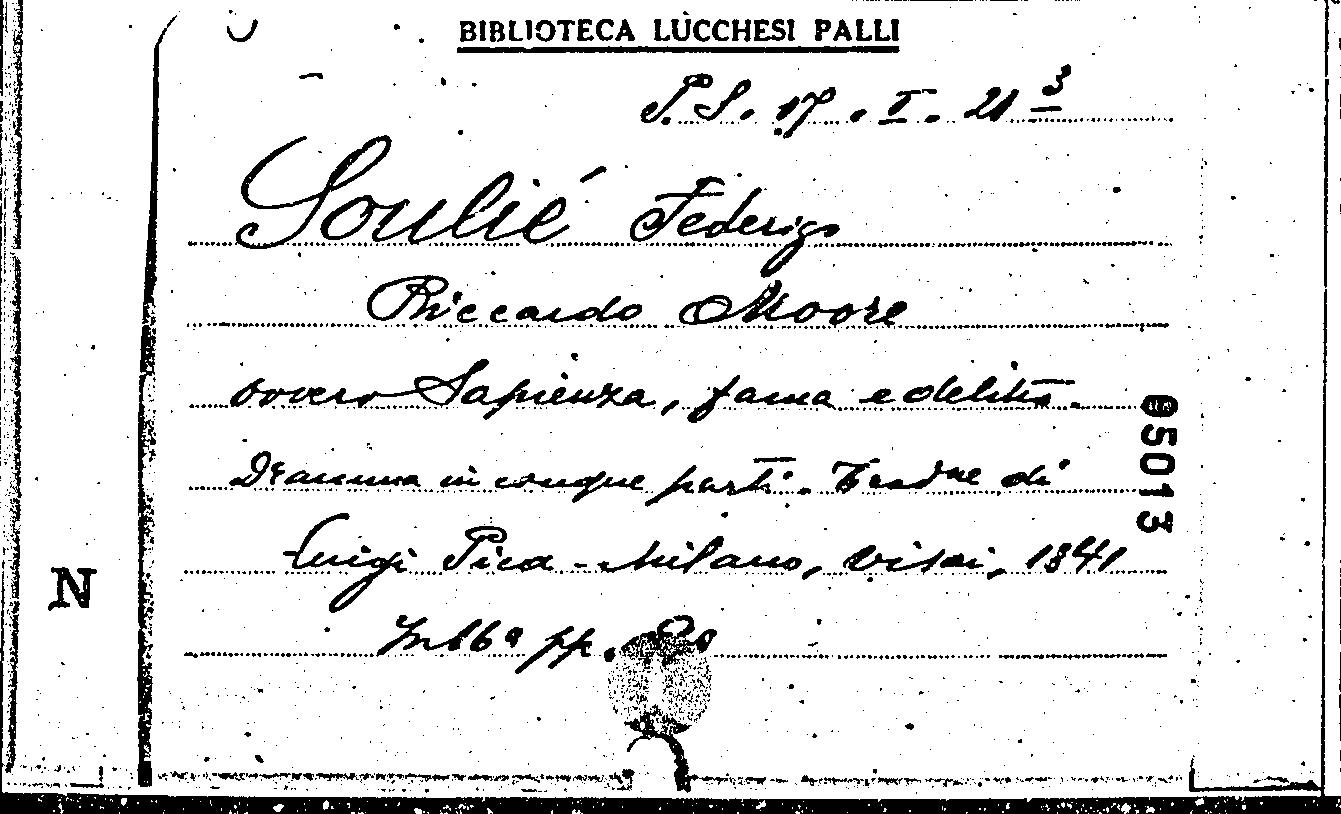 BIBLIOTECA LUCCHESI PALLI
P. S. 17. I. 21 3
Soulié Federigo
Riccardo Moore
ovvero Sapienza, fama e delitto.
Dramma in cinque parti. Traduz di
Luigi Pica - Milano, Visai, 1841
In 16º pp.
05013
N